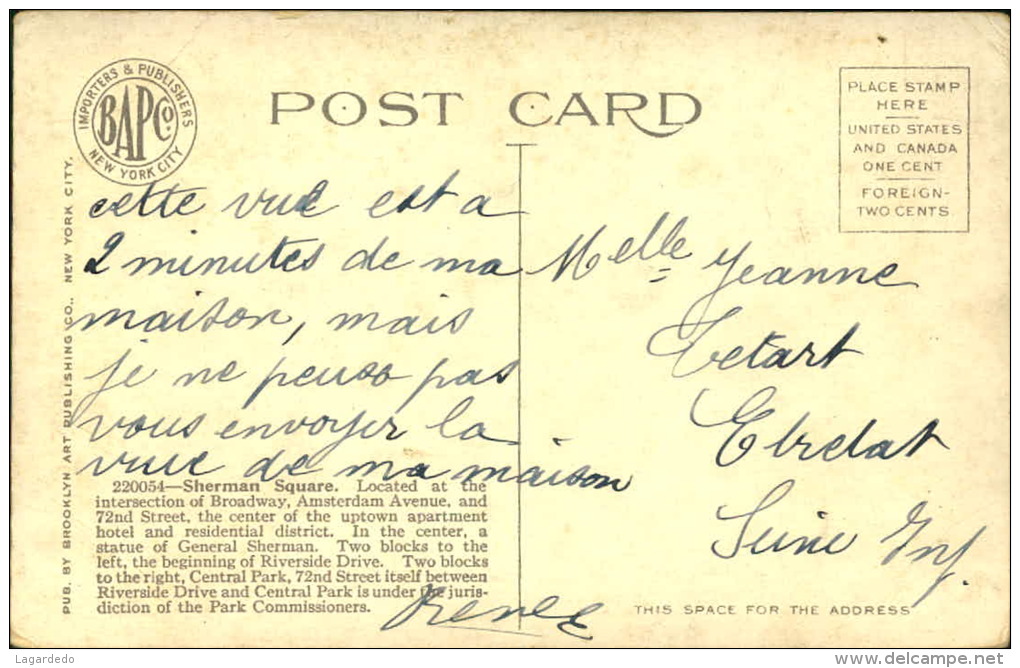 IMPORTERS & PUBLISHERS
BAPCo.
NEW YORK CITY
POST CARD
PLACE STAMP
HERE
UNITED STATES
AND CANADA
ONE CENT
FOREIGN-
TWO CENTS
PUB. BY BROOKLYN ART PUBLISHING CO., NEW YORK CITY.
cette vue est a
2 minutes de ma
maison, mais
je ne peuss pas
vous envoyer la
vue de ma maison
220054—Sherman Square. Located at the
intersection of Broadway, Amsterdam Avenue, and
72nd Street, the center of the uptown apartment
hotel and residential district. In the center, a
statue of General Sherman. Two blocks to the
left, the beginning of Riverside Drive. Two blocks
to the right, Central Park, 72nd Street itself between
Riverside Drive and Central Park is under the juris-
diction of the Park Commissioners.
Renée
Melle Jeanne
Tetart
Etretat
Seine Inf.
THIS SPACE FOR THE ADDRESS
Lagardedo
www.delcampe.net